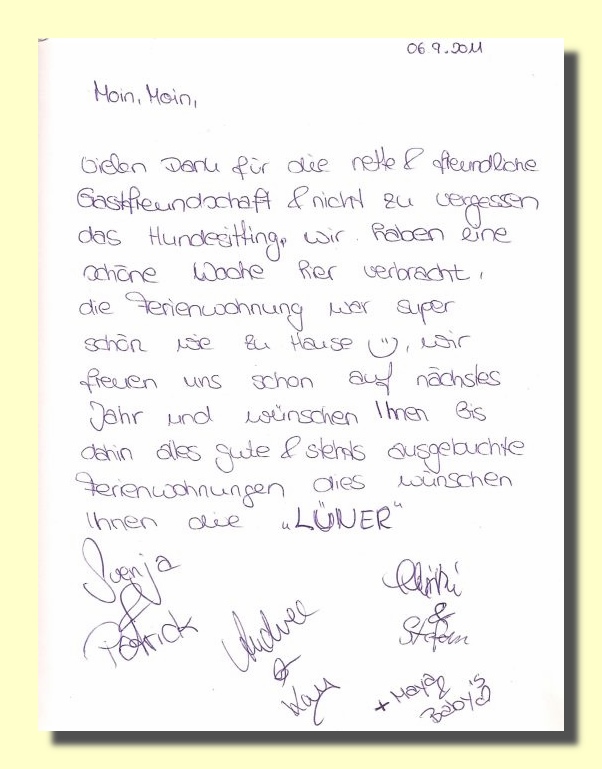 06.9.2011
Moin, Moin,
vielen Dank für die nette & freundliche
Gastfreundschaft & nicht zu vergessen
das Hundesitting, wir haben eine
schöne Woche hier verbracht,
die Ferienwohnung war super
schön wie zu Hause ☺, wir
freuen uns schon auf nächstes
Jahr und wünschen Ihnen bis
dahin alles gute & stehts ausgebuchte
Ferienwohnungen dies wünschen
Ihnen die „LÜNER“
Svenja
&
Patrick
&
Kay
&
Stefan
+ Maya &